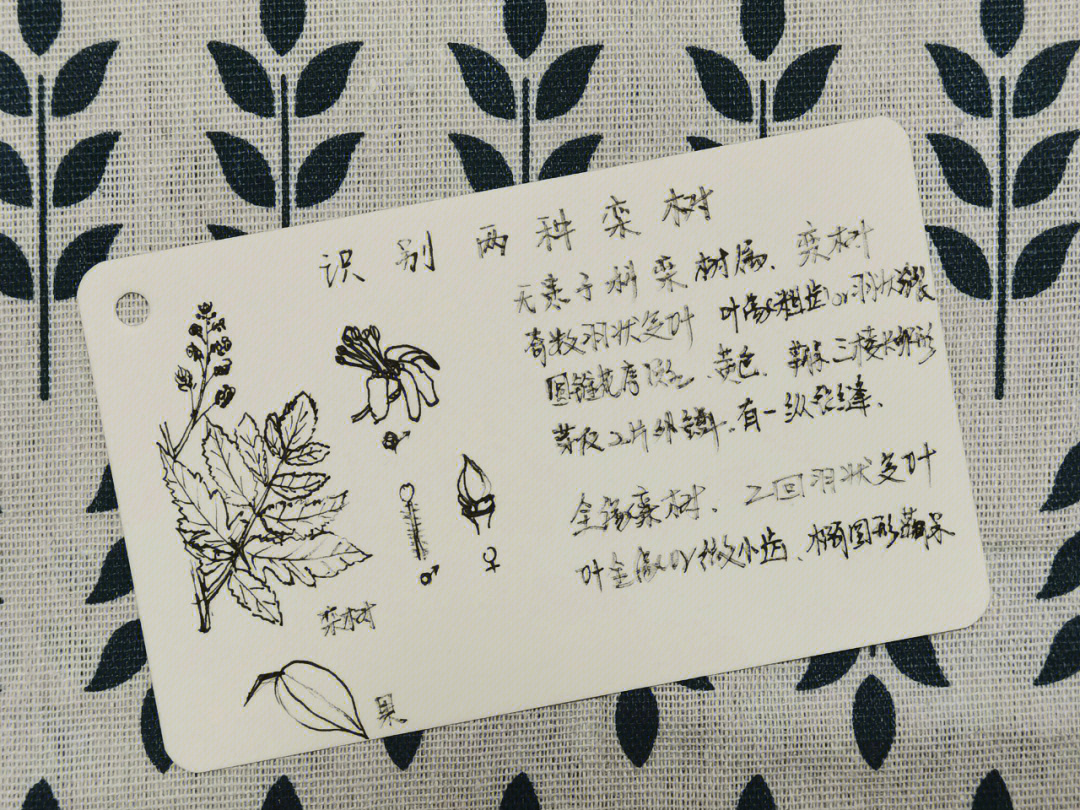 识别两种栾树
无患子科栾树属、栾树
奇数羽状复叶 叶缘粗齿or羽状深裂
圆锥花序顶生、黄色、蒴果三棱长卵形
芽仅2片外鳞、有一纵裂缝、
全缘栾树、2回羽状复叶
叶全缘or微小齿、椭圆形蒴果
♂
♂
♀
栾树
果